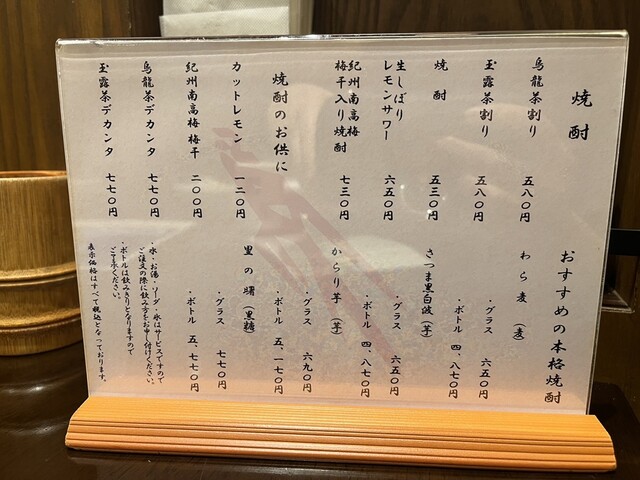 焼酎
烏龍茶割り 五八〇円
玉露茶割り 五八〇円
焼酎 五三〇円
生しぼり
レモンサワー 六五〇円
紀州南高梅
梅干入り焼酎 七三〇円
焼酎のお供に
カットレモン 一二〇円
紀州南高梅 梅干 二〇〇円
烏龍茶デカンタ 七七〇円
玉露茶デカンタ 七七〇円
おすすめの本格焼酎
わら麦 (麦)
・グラス 六五〇円
・ボトル 四、八七〇円
さつま黒白波 (芋)
・グラス 六五〇円
・ボトル 四、八七〇円
からり芋 (芋)
・グラス 六九〇円
・ボトル 五、一七〇円
里の曙 (黒糖)
・グラス 七七〇円
・ボトル 五、七七〇円
・水・お湯・ソーダ・氷はサービスですので
ご注文の際に飲み方をお申し付けください。
・ボトルは飲みきりとなりますので
ご了承ください。
表示価格はすべて税込となっております。